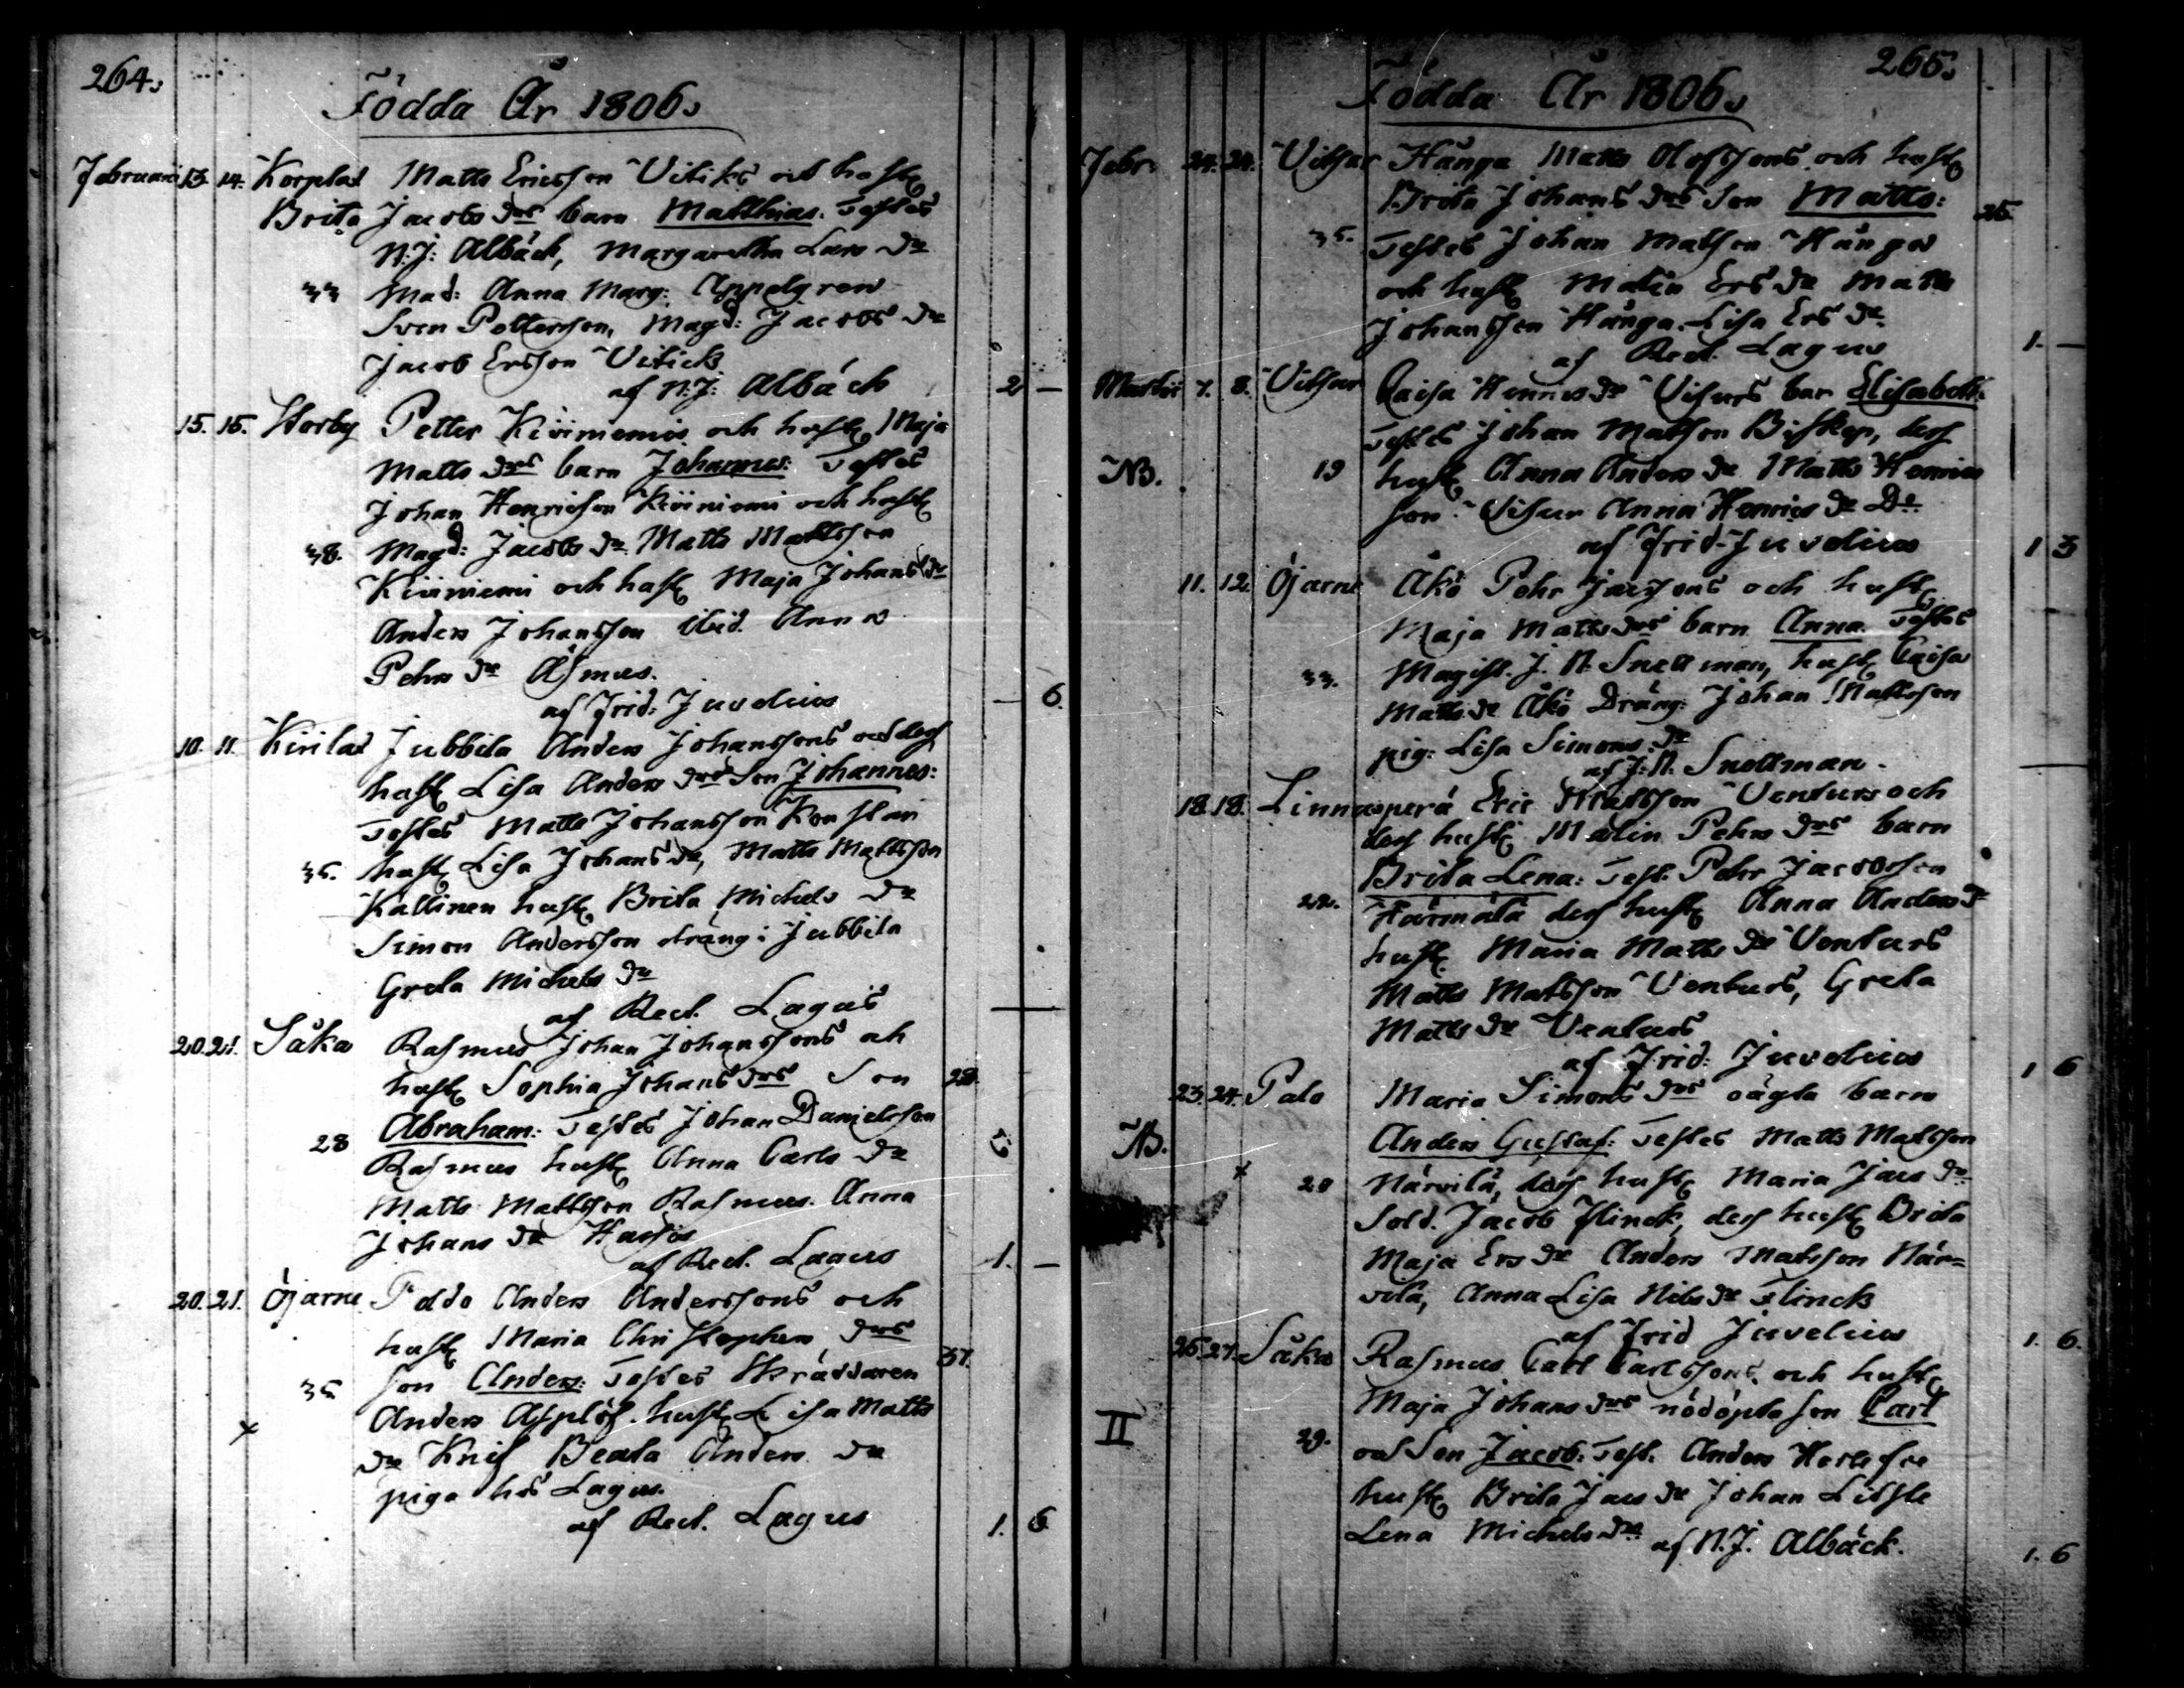 264.
Födda År 1806.
Februarii 13. 14. Korplax Matts Ericsson Vitiks och hust
Brita Jacobs drs barn Matthias. Testes
N: J: Albäck, Margaretha Lars dr
33 Mad: Anna Marg: Appelgren
Sven Pettersson, Magd: Jacobs dr
Jacob Ersson Vitick
af N: J: Albäck 2 —
15. 16. Storby Petter Kiviniemis och hust Maja
Matts drs barn Johannes: Testes
Johan Henricson Kiviniemi och hust
38. Magd: Jacobs dr Matts Mattsson
Kiviniemi och hust Maja Johans dr
Anders Johansson ibid. Anna
Pehrs dr Åsmus.
af Frid: Juvelius — 6.
10. 11. Kirilax Jubbila Anders Johanssons och dess
hust Lisa Anders drs Son Johannes:
Testes Matts Johansson
35. hust Lisa Johans dr, Matts Mattsson
Kallinen hust Brita Michels dr
Simon Andersson dräng i Jubbila
Greta Michels dr
af Rect. Lagus —
20. 21. Såka Rasmus Johan Johanssons och
hust Sophia Johans drs Son 28.
Abraham: Testes Johan Danielsson
28 Rasmus hust Anna Carls dr
Matts Mattsson Rasmus. Anna
Johans dr
af Rect. Lagus 1. —
20. 21. Öjarne Poldo Anders Anderssons och
hust Maria Christophers drs 37.
35 Son Anders: Testes Skräddaren
Anders Asplöf. hust Lisa Matts
dr Knif Beata Anders dr
piga hos Lagus.
af Rect. Lagus 1. 6
265.
Födda År 1806.
Febr. 24. 24. Vitsar Hånga Matts Olofssons och hust
Brita Johans drs Son Matts: 25.
35. Testes Johan Matsson Hånga
och hust Malin Ers dr Matts
Johansson Hånga. Lisa Ers dr.
af Rect. Lagus 1. —
Martii 7. 8. Vitsar Caisa Henrics dr Visurs bar Elisabeth:
Testes Johan Matsson Biskop, dess
NB. 19 hust Anna Anders dr Matts Henrics
son Visur Anna Henrics dr Do
af Frid. Juvelius 1 3
11. 12. Öjarne Åkö Pehr Jacssons och hust
Maja Matts drs barn Anna. Testes
33. Magist. J. N. Snellman, hust Caisa
Matts dr Åkö Dräng: Johan Mattsson
pig: Lisa Simons dr
af J: N. Snellman. —
18. 18. Linnasperä Eric Mattsson Venturs och
dess hust Malin Pehrs drs barn
Brita Lena: Test. Pehr Jacobsson
22. Härmälä dess hust Anna Anders dr
hust Maria Matts dr Venturs
Matts Matsson Venturs, Greta
Matts dr Venturs
af Frid: Juvelius 1 6
23. 24. Palo Maria Simons drs oägta barn
NB. Anders Gustaf: Testes Matts Matsson
20 Närvilä, dess hust Maria Jacs dr
Sold. Jacob Flinck, dess hust Brita
Maja Ers dr Anders Matsson När=
vilä, Anna Lisa Nils dr Flinck
af Frid Juvelius 1. 6.
26. 27. Såka Rasmus Carl Carlssons och hust
Maja Johans drs nödöpta son Carl
II 29. och Son Jacob: Test. Anders
hust Brita Jacs dr Johan
Lena Michels dr. af N. J. Albäck. 1. 6